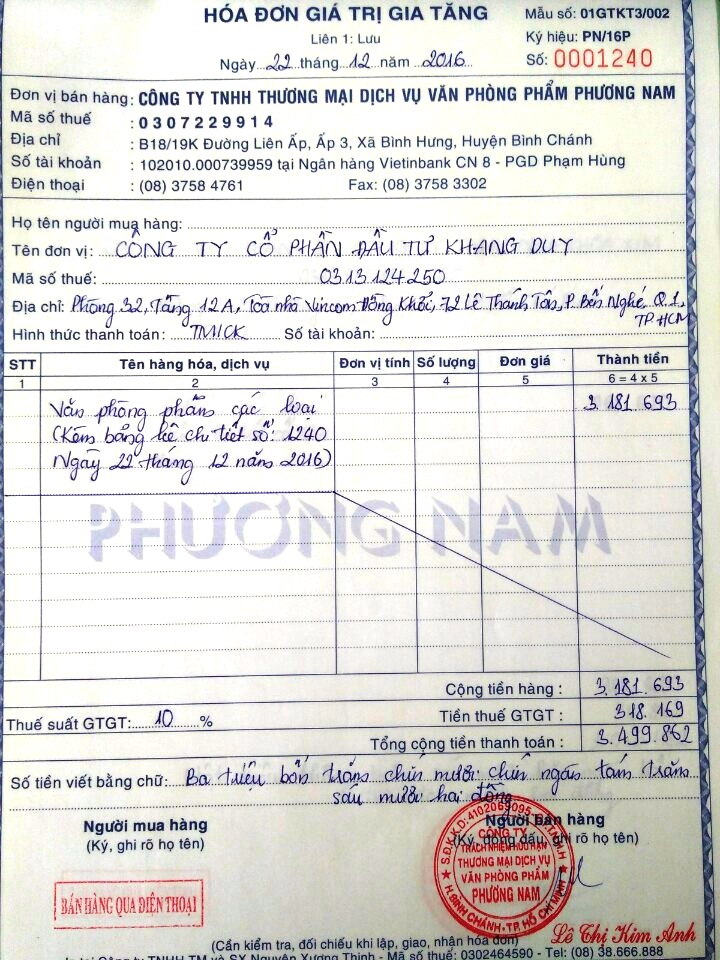 HÓA ĐƠN GIÁ TRỊ GIA TĂNG
Liên 1: Lưu
Ngày 22 tháng 12 năm 2016
Mẫu số: 01GTKT3/002
Ký hiệu: PN/16P
Số: 0001240
Đơn vị bán hàng: CÔNG TY TNHH THƯƠNG MẠI DỊCH VỤ VĂN PHÒNG PHẨM PHƯƠNG NAM
Mã số thuế : 0307229914
Địa chỉ : B18/19K Đường Liên Ấp, Ấp 3, Xã Bình Hưng, Huyện Bình Chánh
Số tài khoản : 102010.000739959 tại Ngân hàng Vietinbank CN 8 - PGD Phạm Hùng
Điện thoại : (08) 3758 4761 Fax: (08) 3758 3302
Họ tên người mua hàng:
Tên đơn vị: CÔNG TY CỔ PHẦN ĐẦU TƯ KHANG DUY
Mã số thuế: 0313124250
Địa chỉ: Phòng 32, Tầng 12A, Toà nhà Vincom Đồng Khởi, 72 Lê Thánh Tôn, P. Bến Nghé, Q.1,
TP HCM
Hình thức thanh toán: TM/CK Số tài khoản:
STT Tên hàng hóa, dịch vụ Đơn vị tính Số lượng Đơn giá Thành tiền
1 2 3 4 5 6 = 4 x 5
Văn phòng phẩm các loại 3.181.693
(Kèm bảng kê chi tiết số: 1240
Ngày 22 tháng 12 năm 2016)
PHƯƠNG NAM
Cộng tiền hàng : 3.181.693
Thuế suất GTGT: 10 % Tiền thuế GTGT : 318.169
Tổng cộng tiền thanh toán : 3.499.862
Số tiền viết bằng chữ: Ba triệu bốn trăm chín mươi chín ngàn tám trăm
sáu mươi hai đồng
Người mua hàng
(Ký, ghi rõ họ tên)
Người bán hàng
(Ký, đóng dấu, ghi rõ họ tên)
BÁN HÀNG QUA ĐIỆN THOẠI
S.Đ.K.K.D: 4102069095
CÔNG TY
TRÁCH NHIỆM HỮU HẠN
THƯƠNG MẠI DỊCH VỤ
VĂN PHÒNG PHẨM
PHƯƠNG NAM
H. BÌNH CHÁNH - TP. HỒ CHÍ MINH
Lê Thị Kim Anh
(Cần kiểm tra, đối chiếu khi lập, giao, nhận hóa đơn)
In tại Công ty TNHH TM và SX Nguyễn Xương Thịnh - Mã số thuế: 0302464590 - ĐT: (08) 38.666.888